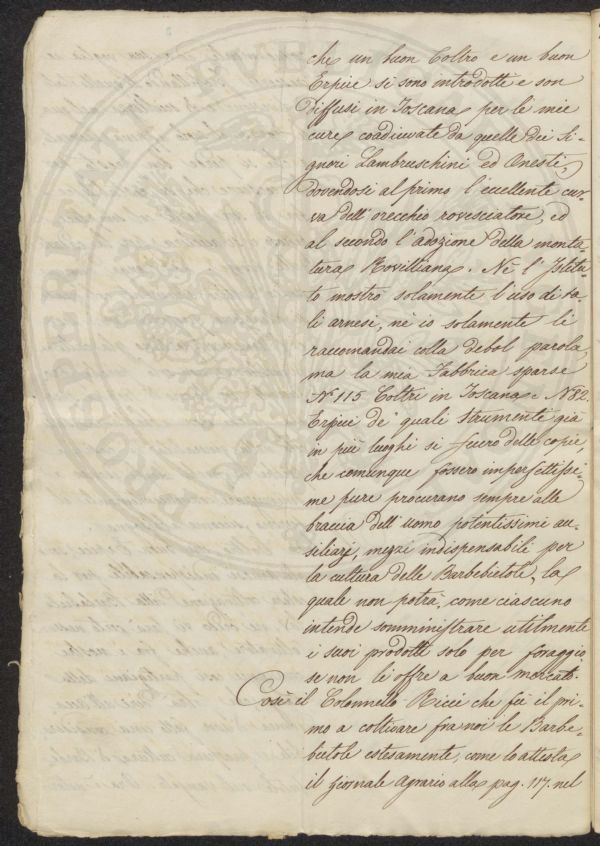 che un buon Coltro e un buon
Erpice si sono introdotti e son
diffusi in Toscana per le mie
cure coadiuvate da quelle dei Si-
gnori Lambruschini ed Onesti,
dovendosi al primo l'eccellente cur-
va dell'orecchio rovesciatore, ed
al secondo l'adozione della monta-
tura Rovilliana. Nè l'Istitu-
to mostrò solamente l'uso di ta-
li arnesi, nè io solamente li
raccomandai colla debol parola,
ma la mia Fabbrica sparse
N° 115 Coltri in Toscana e N° 82.
Erpici de' quali strumenti già
in più luoghi si fecero delle copie,
che comunque fossero imperfettissi-
me pure procurano sempre alle
braccia dell'uomo potentissimi au-
siliarj, mezzi indispensabili per
la cultura delle Barbebietole, la
quale non potrà, come ciascuno
intende somministrare utilmente
i suoi prodotti solo per foraggio
se non li offre a buon mercato.
Così il Colonnello Ricci che fù il pri-
mo a coltivare fra noi le Barbe-
bietole estesamente, come lo attesta
il giornale Agrario alla pag. 117. nel
PROSPERITÀ